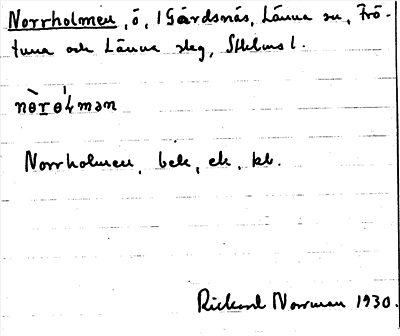 Norrholmen, ö, 1 Gärdsnäs, Länna sn, Frö-
tuna och Länna skg, Sthlms l.
Norrholmen, bek, ek, kb.
Rickard Norrman 1930.